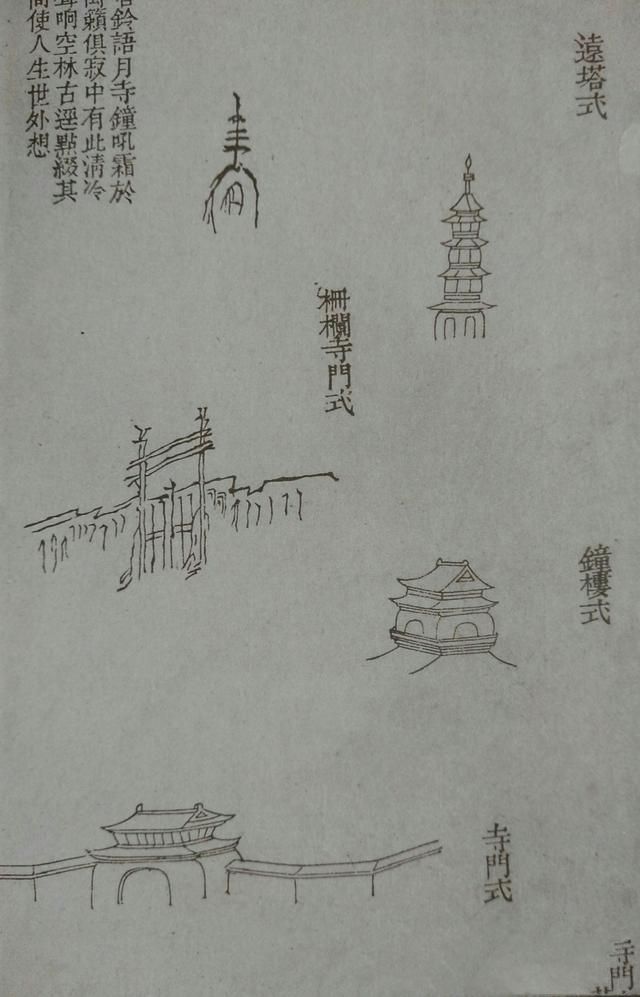 遠塔式
鐘樓式
寺門式
寺門
柵欄寺門式
鈴語月寺鐘吼霜於
籟俱寂中有此淸冷
响空林古逕點綴其
使人生世外想